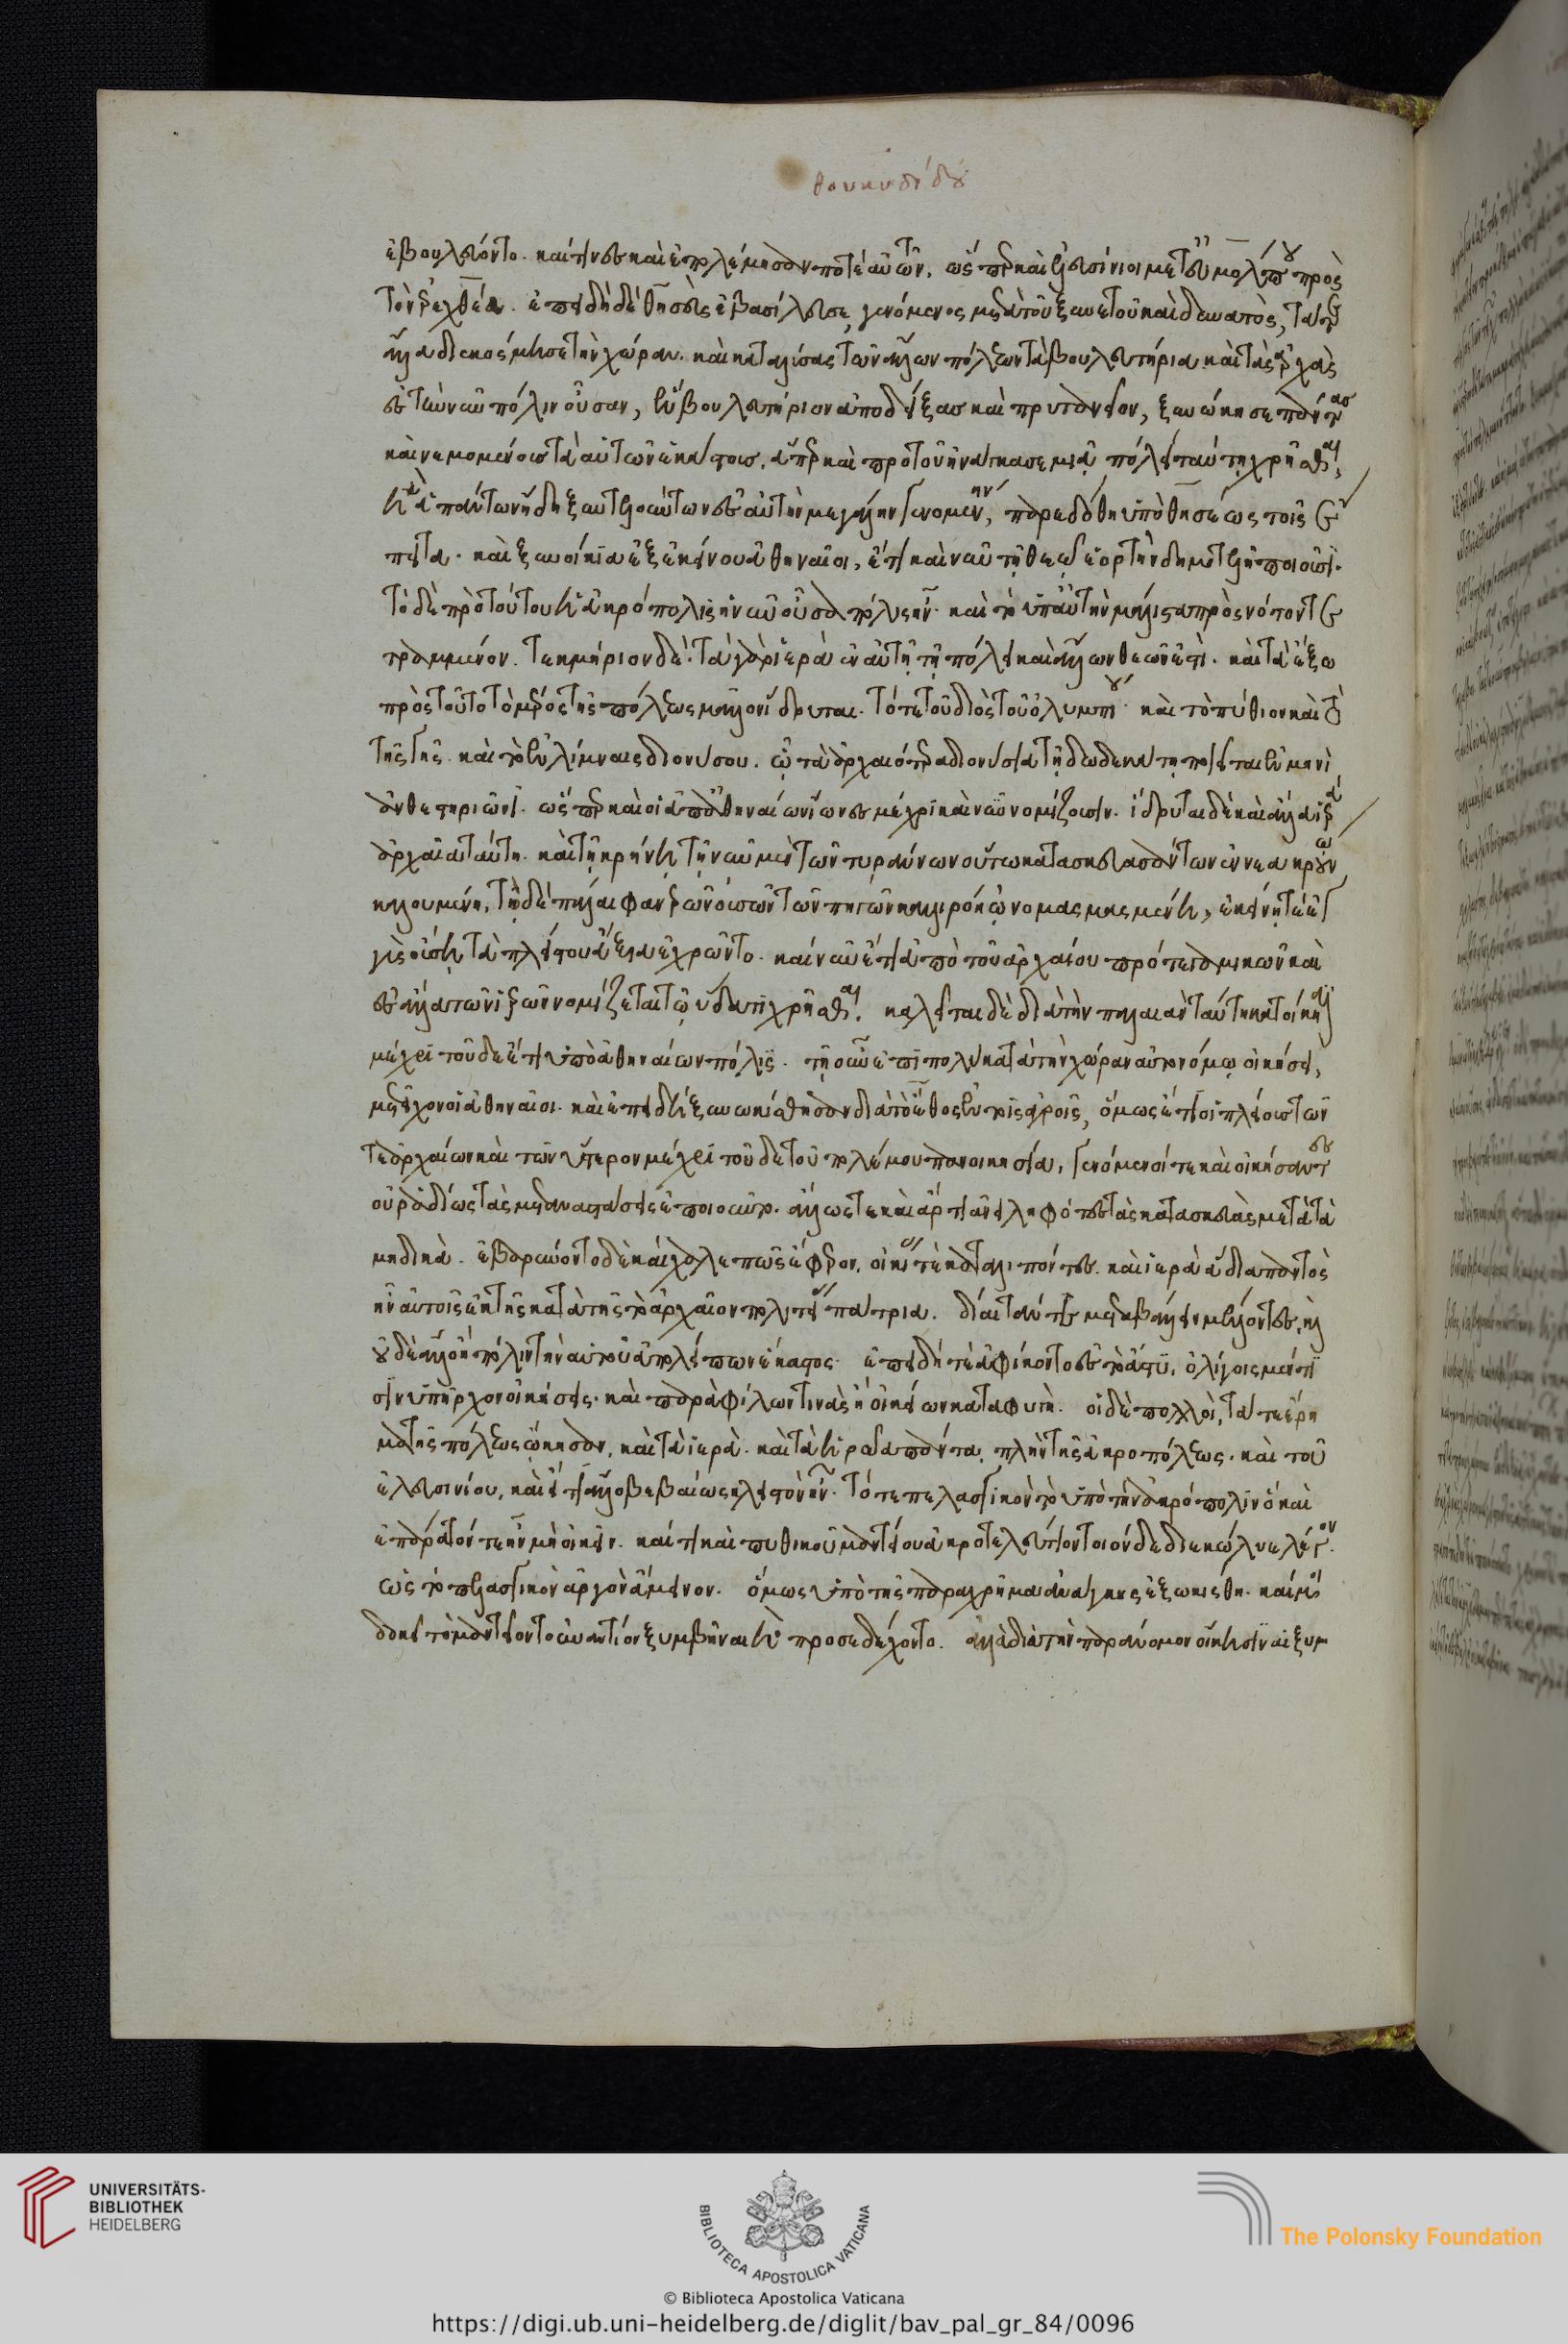 θουκυδίδου
ἐβουλεύοντο. καί τινες καὶ ἐπολέμησάν ποτέ αὐτῶν. ὥσπερ καὶ ἐλευσίνιοι μετ' εὐμόλπου πρὸς
τὸν ἐρεχθέα. ἐπειδὴ δὲ θησεὺς ἐβασίλευσε, γενόμενος μετὰ τοῦ ξυνετοῦ καὶ δυνατὸς, τά τε
ἄλλα διεκόσμησε τὴν χώραν. καὶ καταλύσας τῶν ἄλλων πόλεων τὰ βουλευτήρια καὶ τὰς ἀρχὰς
ἐς τὴν νῦν πόλιν οὖσαν, ἓν βουλευτήριον ἀποδείξας καὶ πρυτανεῖον, ξυνώκησε πάντας
καὶ νεμομένους τὰ αὑτῶν ἑκάστους. ἅπερ καὶ πρὸ τοῦ ἠνάγκασε μιᾷ πόλει ταύτῃ χρῆσθαι,
ἣ ἁπάντων ἤδη ξυντελούντων ἐς αὐτὴν μεγάλη γενομένην, παρεδόθη ὑπὸ θησέως τοῖς ἔ
πειτα. καὶ ξυνοίκια ἐξ ἐκείνου ἀθηναῖοι, ἔτι καὶ νῦν τῇ θεῷ ἑορτὴν δημοτελῆ ποιοῦσι.
τὸ δὲ πρὸ τούτου ἡ ἀκρόπολις ἡ νῦν οὖσα πόλις ἦν. καὶ τὸ ὑπ' αὐτὴν μάλιστα πρὸς νότον τε
τραμμένον. τεκμήριον δέ. τὰ γὰρ ἱερὰ ἐν αὐτῇ τῇ πόλει καὶ ἄλλων θεῶν ἐστι. καὶ τὰ ἔξω
πρὸς τοῦτο τὸ μέρος τῆς πόλεως μᾶλλον ἵδρυται. τό τε τοῦ διὸς τοῦ ὀλυμπίου. καὶ τὸ πύθιον καὶ τὸ
τῆς γῆς. καὶ τὸ ἐν λίμναις διονύσου. ᾧ τὰ ἀρχαιότερα διονύσια τῇ δωδεκάτῃ ποιεῖται ἐν μηνὶ
ἀνθεστηριῶνι. ὥσπερ καὶ οἱ ἀπ' ἀθηναίων ἴωνες μέχρι καὶ νῦν νομίζουσιν. ἵδρυται δὲ καὶ ἄλλα ἱερὰ
ἀρχαῖα ταύτῃ. καὶ τῇ κρήνῃ τῇ νῦν μὲν τῶν τυράννων οὕτω κατασκευασάντων ἐννεακρούνω
καλουμένη, τῇ δὲ πάλαι φανερῶν οὐσῶν τῶν πηγῶν καλλιρόῃ ὠνομασμένῃ, ἐκείνῃ τε ἐγ
γὺς οὔσῃ τὰ πλείστου ἄξια ἐχρῶντο. καὶ νῦν ἔτι ἀπὸ τοῦ ἀρχαίου πρό τε γαμικῶν καὶ
ἐς ἄλλα τῶν ἱερῶν νομίζεται τῷ ὕδατι χρῆσθαι. καλεῖται δὲ διὰ τὴν παλαιὰν ταύτῃ κατοίκησιν
μέχρι τοῦδε ἔτι ὑπὸ ἀθηναίων πόλις. τῇ οὖν ἐπὶ πολὺ κατὰ τὴν χώραν αὐτονόμῳ οἰκήσει,
μετεῖχον οἱ ἀθηναῖοι. καὶ ἐπειδὴ ξυνωκίσθησαν διὰ τὸ ἔθος ἐν τοῖς ἀγροῖς, ὅμως ἔτι οἱ πλείους τῶν
τε ἀρχαίων καὶ τῶν ὕστερον μέχρι τοῦδε τοῦ πολέμου πανοικησίᾳ, γενόμενοί τε καὶ οἰκήσαντες
οὐ ῥαδίως τὰς μεταναστάσεις ἐποιοῦντο. ἄλλως τε καὶ ἄρτι ἀνειληφότες τὰς κατασκευὰς μετὰ τὰ
μηδικὰ. ἐβαρύνοντο δὲ καὶ χαλεπῶς ἔφερον. οἰκίας τὲ καταλιπόντες. καὶ ἱερὰ ἃ διαπαντὸς
ἦν αὐτοῖς ἐκ τῆς κατὰ τῆς τὸ ἀρχαῖον πολιτείας πάτρια. δίαιτάν τε μεταβάλλειν μέλλοντες. καὶ
οὐδὲ ἄλλο ἢ πόλιν τὴν αὑτοῦ ἀπολείπων ἕκαστος. ἐπειδή τε ἀφίκοντο ἐς τὸ ἄστυ, ὀλίγοις μέν τι
σιν ὑπῆρχον οἰκήσεις. καὶ παρὰ φίλων τινὰς ἢ οἰκείων καταφυγή. οἱ δὲ πολλοὶ, τά τε ἐρῆ
μα τῆς πόλεως ᾤκησαν, καὶ τὰ ἱερὰ. καὶ τὰ ἡρῶα πάντα, πλὴν τῆς ἀκροπόλεως. καὶ τοῦ
ἐλευσινίου, καὶ εἴ τι ἄλλο βεβαίως κλειστὸν ἦν. τό τε πελασγικὸν τὸ ὑπὸ τὴν ἀκρόπολιν ὃ καὶ
ἐπάρατόν τε ἦν μὴ οἰκεῖν. καί τι καὶ πυθικοῦ μαντείου ἀκροτελεύτιον τοιόνδε διεκώλυε λέγον.
ὡς τὸ πελασγικὸν ἀργὸν ἄμεινον. ὅμως ὑπὸ τῆς παραχρῆμα ἀνάγκης ἐξῳκίσθη. καί μοι
δοκεῖ τὸ μαντεῖον τὸ ἐναντίον ξυμβῆναι ἢ προσεδέχοντο. οὐ γὰρ διὰ τὴν παράνομον οἴκησιν αἱ ξυμ
UNIVERSITÄTS-
BIBLIOTHEK
HEIDELBERG
BIBLIOTECA APOSTOLICA VATICANA
The Polonsky Foundation
© Biblioteca Apostolica Vaticana
https://digi.ub.uni-heidelberg.de/diglit/bav_pal_gr_84/0096